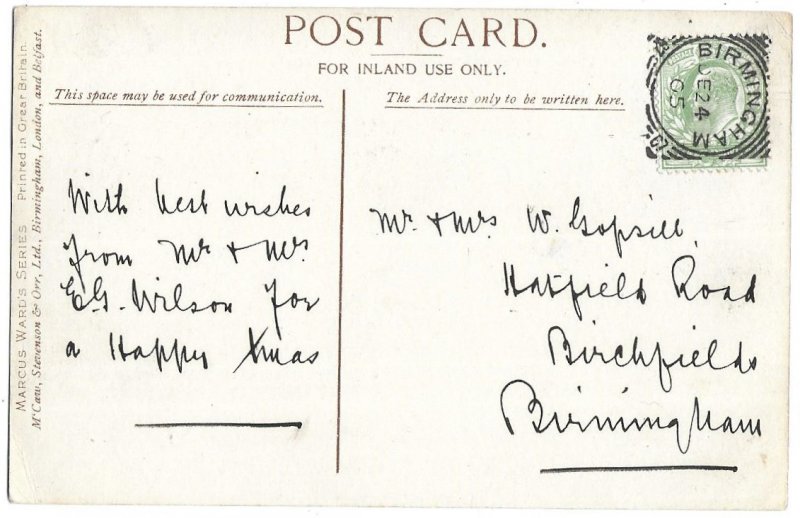 POST CARD.
FOR INLAND USE ONLY.
This space may be used for communication.
The Address only to be written here.
BIRMINGHAM
DE 24
05
MARCUS WARD'S SERIES Printed in Great Britain.
McCaw, Stevenson & Orr, Ltd., Birmingham, London, and Belfast.
With best wishes
from Mr & Mrs
E.G. Wilson for
a Happy Xmas
Mr & Mrs W. Gopsill,
Hatfield Road
Birchfields
Birmingham